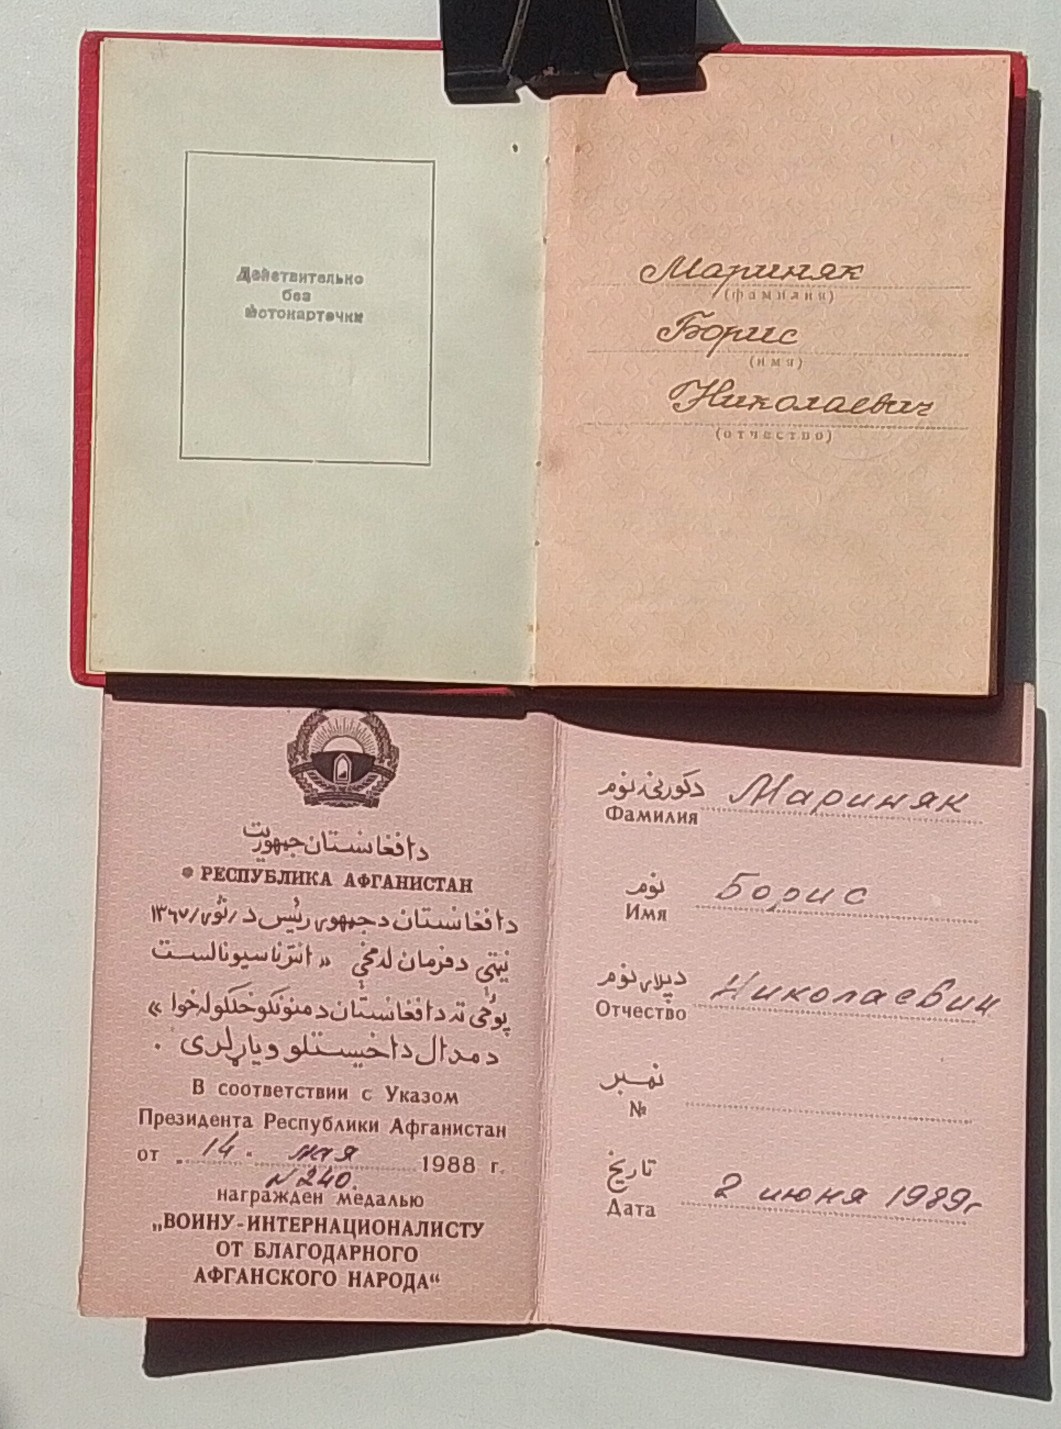 Действительно
без
фотокарточки
Мариняк
(фамилия)
Борис
(имя)
Николаевич
(отчество)
دافغانستان جمهوریت
РЕСПУБЛИКА АФГАНИСТАН
دافغانستان دجمهوری رئیس د /ثور/ ۱۳۶۷
نیټې دفرمان له مخې «انترناسیونالست
پوځي ته دافغانستان دمننوکوخلکولەخوا»
دمدال داخیستلو ویاړلری .
В соответствии с Указом
Президента Республики Афганистан
от 14. мая 1988 г.
N 240.
награжден медалью
„ВОИНУ-ИНТЕРНАЦИОНАЛИСТУ
ОТ БЛАГОДАРНОГО
АФГАНСКОГО НАРОДА“
دکورنۍ نوم Мариняк
Фамилия
نوم Борис
Имя
دپلار نوم Николаевич
Отчество
نمبر
№
تاریخ 2 июня 1989г
Дата